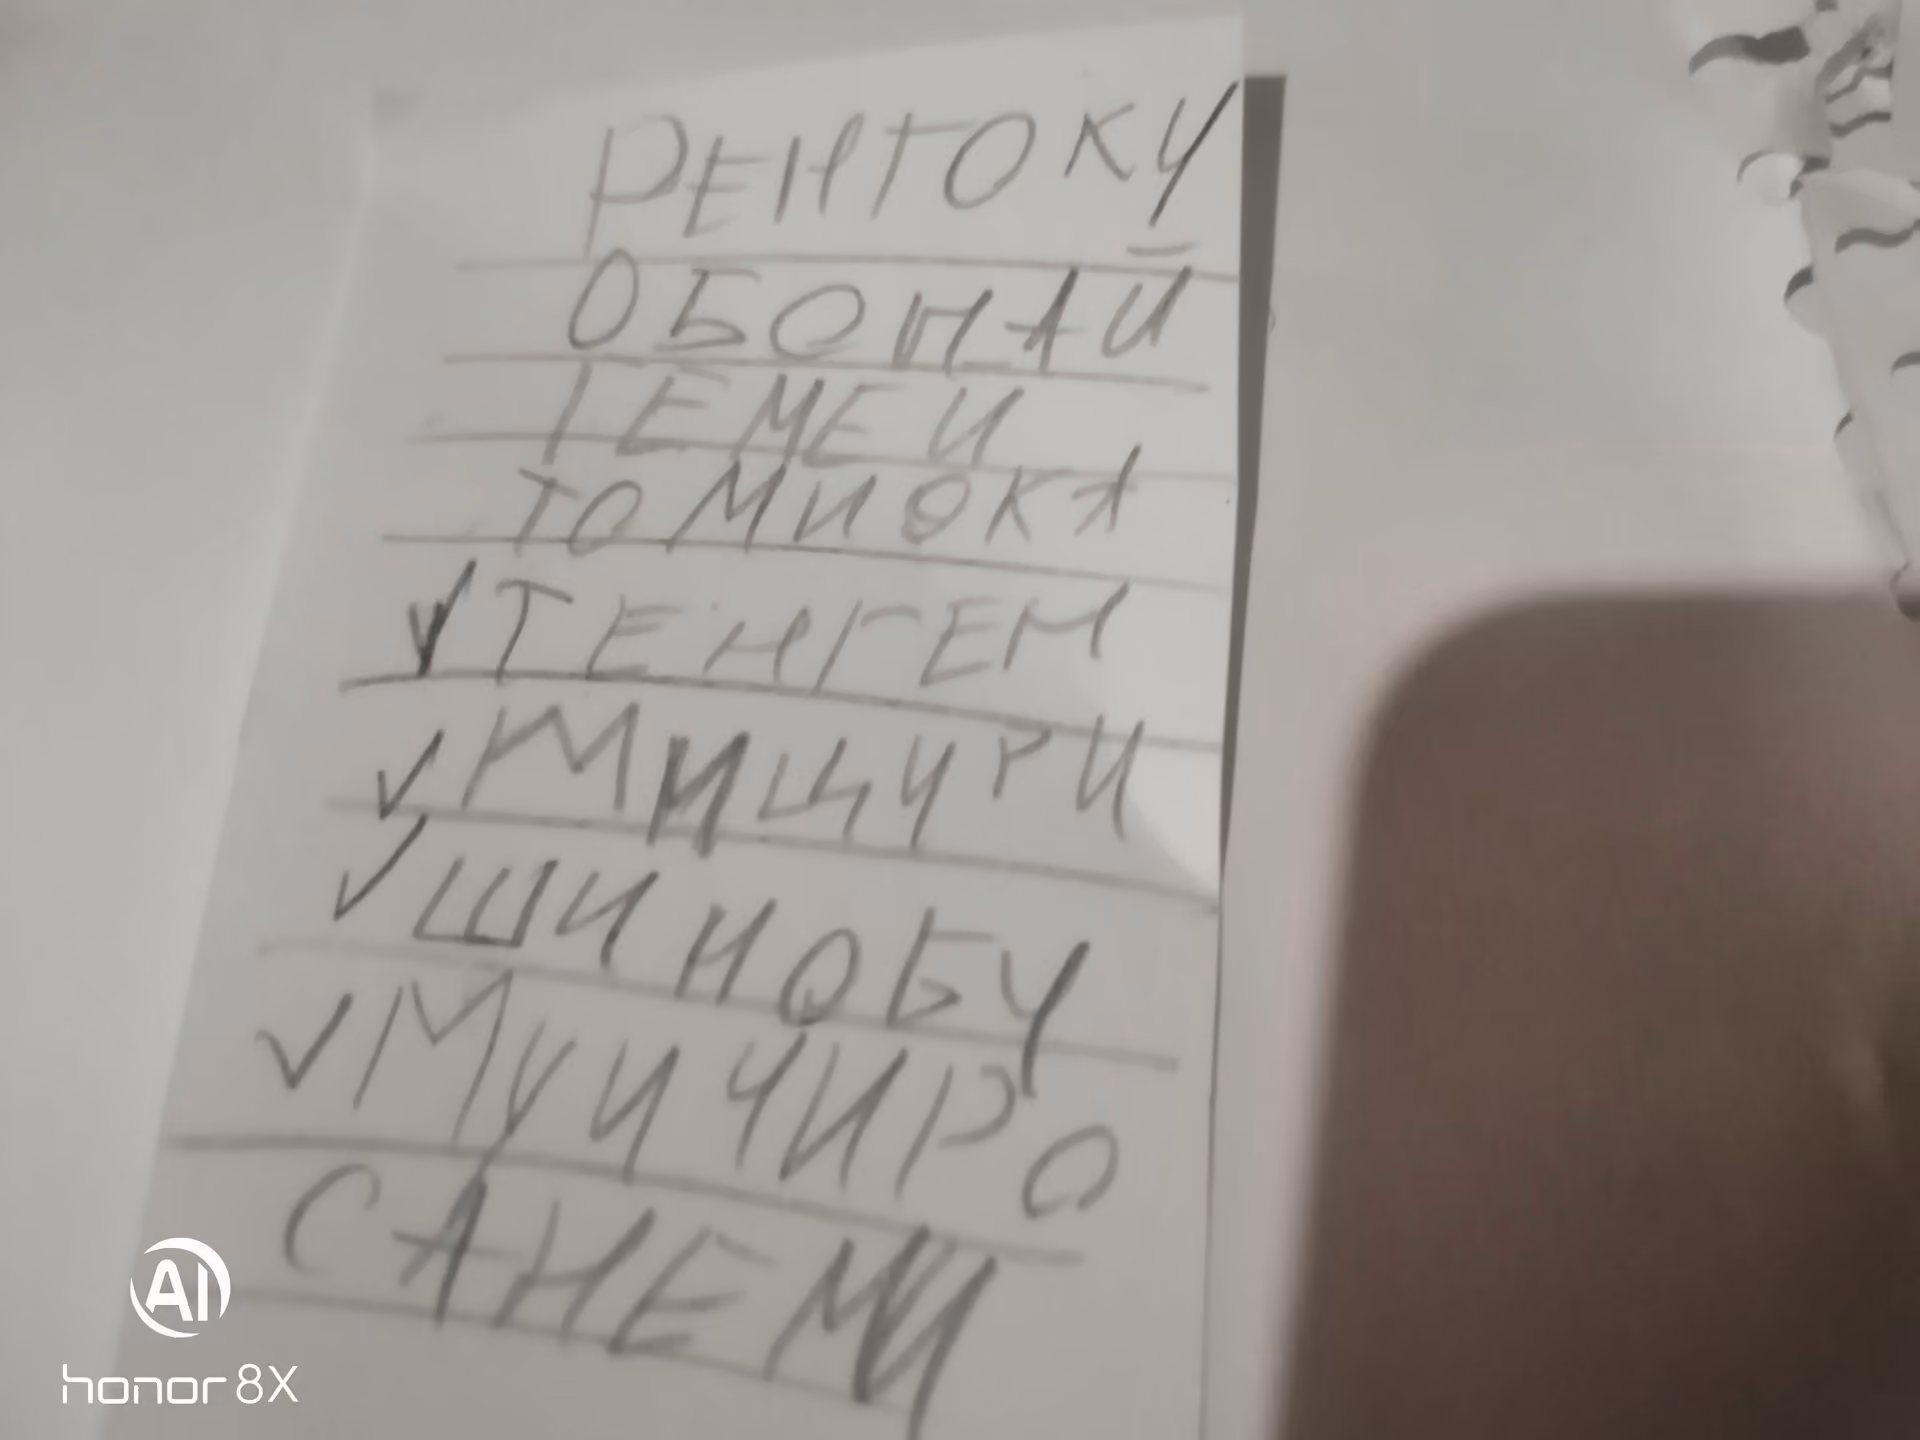 РЕНГОКУ
ОБОНАЙ
ГЕМЕИ
ТОМИОКА
✓ ТЕНГЕН
✓ МИЦУРИ
✓ ШИНОБУ
✓ МУИЧИРО
САНЕМИ
AI
honor 8X